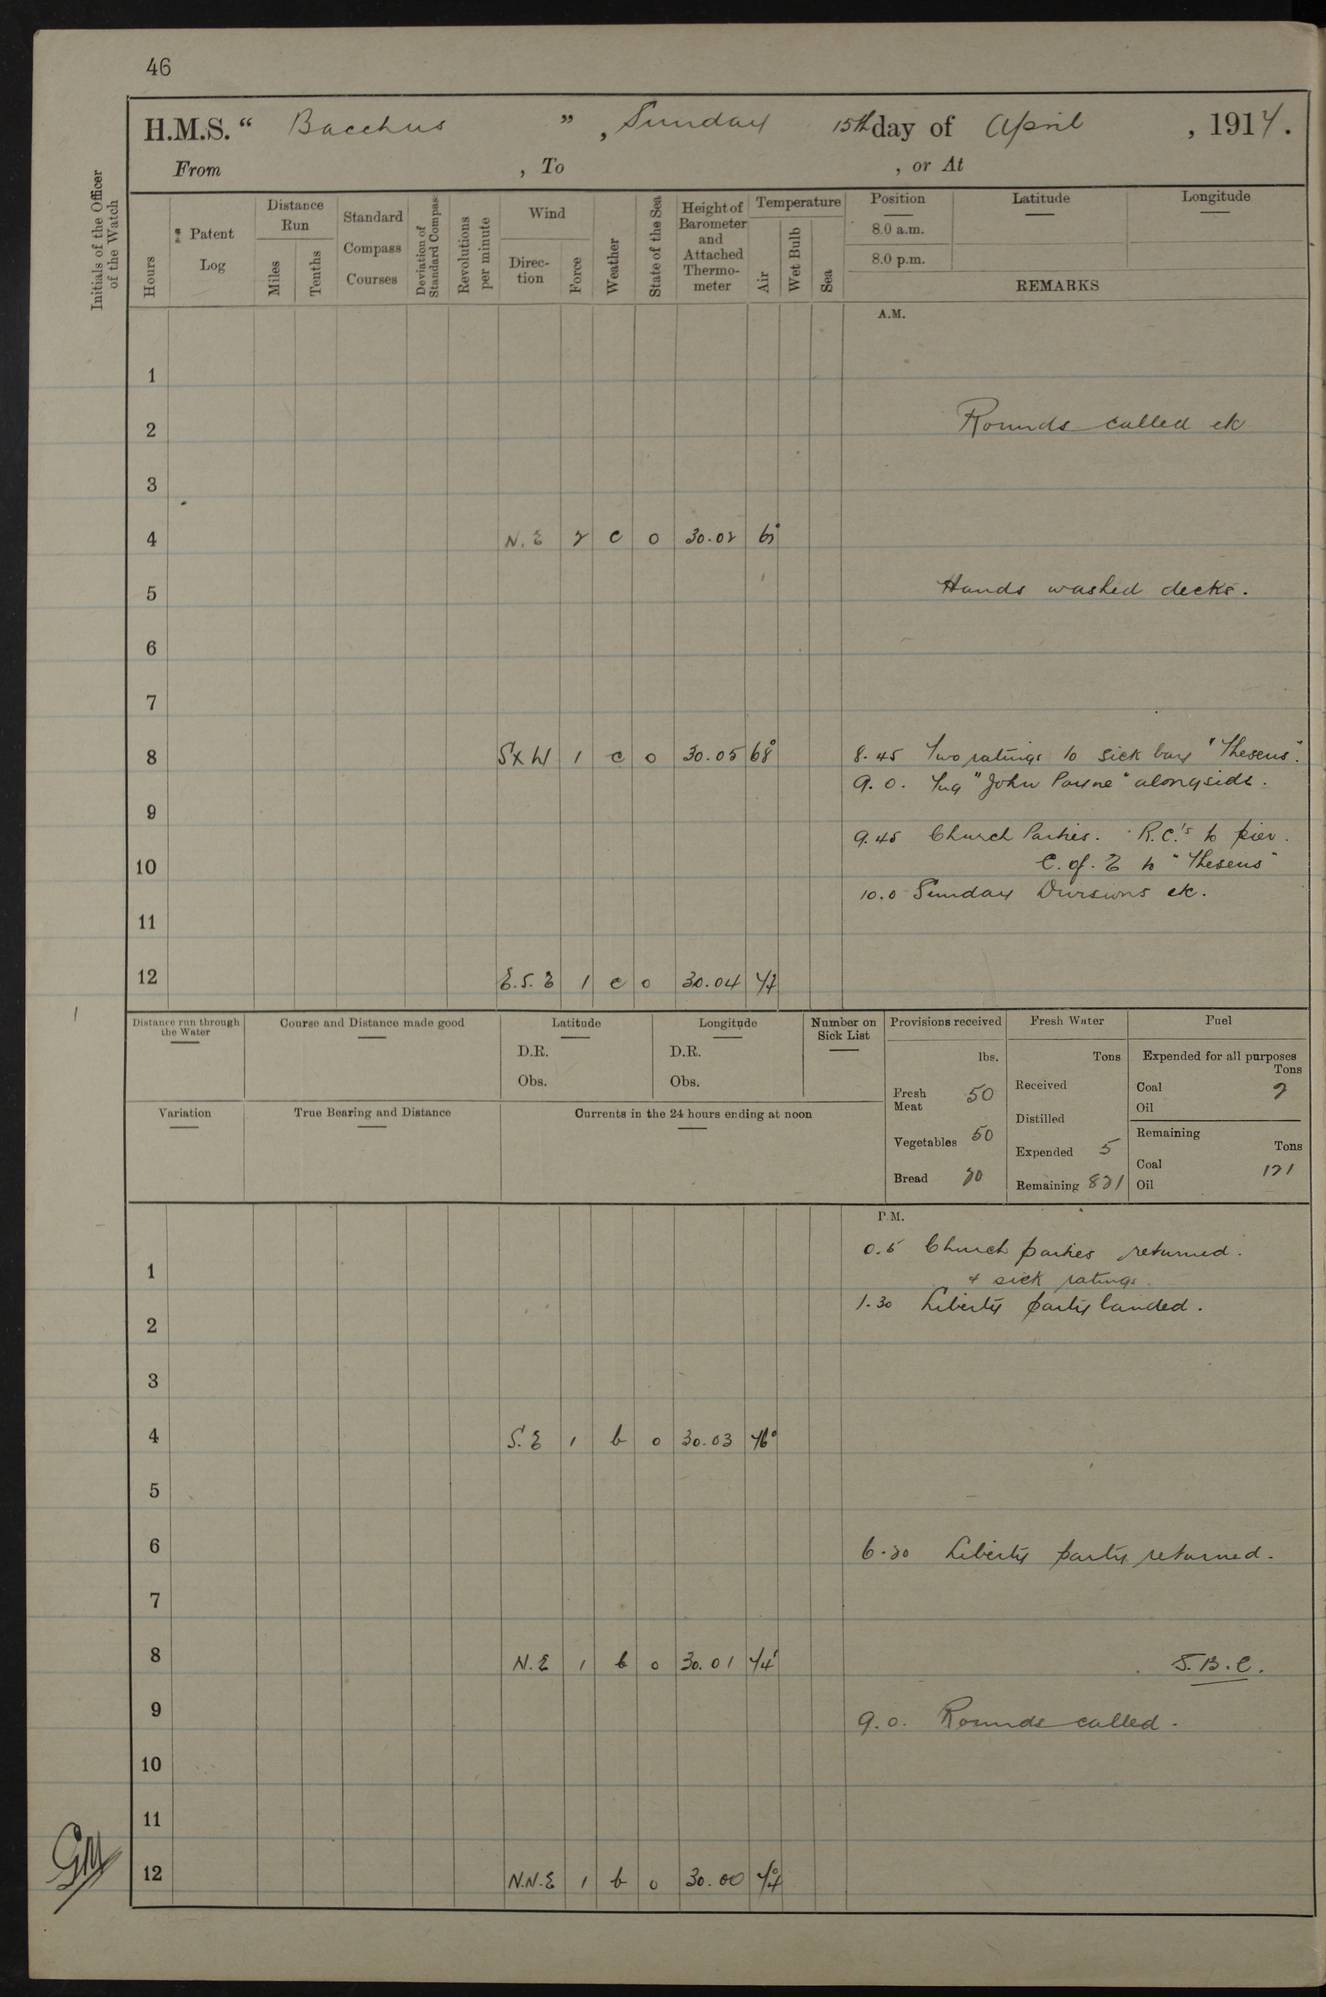 46
H.M.S. “ Bacchus ” , Sunday 15th day of April , 1917.
From , To , or At
Initials of the Officer of the Watch
Hours
Patent Log
Distance Run
Miles
Tenths
Standard Compass Courses
Deviation of Standard Compass
Revolutions per minute
Wind
Direction
Force
Weather
State of the Sea
Height of Barometer and Attached Thermometer
Temperature
Air
Wet Bulb
Sea
Position Latitude Longitude
8.0 a.m.
8.0 p.m.
REMARKS
A.M.
1
2 Rounds called etc
3
4 N.E 2 c o 30.02
5 Hands washed decks.
6
7
8 S x W 1 c o 30.05 68° 8.45 Two ratings to sick bay "Theseus".
9.0. Tug "John Payne" alongside.
9
9.45 Church Parties. R.C.'s to pier.
10 C. of E to "Theseus"
10.0 Sunday Divisions etc.
11
12 E.S.E 1 c o 30.04
Distance run through the Water
Course and Distance made good
Latitude
D.R.
Obs.
Longitude
D.R.
Obs.
Number on Sick List
Variation
True Bearing and Distance
Currents in the 24 hours ending at noon
Provisions received
lbs.
Fresh Meat 50
Vegetables 50
Bread
Fresh Water
Tons
Received
Distilled
Expended 5
Remaining
Fuel
Expended for all purposes
Tons
Coal 2
Oil
Remaining
Tons
Coal 121
Oil
P.M.
0.5 Church parties returned.
1 & sick ratings.
1.30 Liberty party landed.
2
3
4 S.E 1 b o 30.03 76°
5
6 6.30 Liberty party returned.
7
8 N.E 1 b o 30.01 74° S.B.C.
9 9.0. Rounds called.
10
11
12 N.N.E 1 b o 30.00
GM